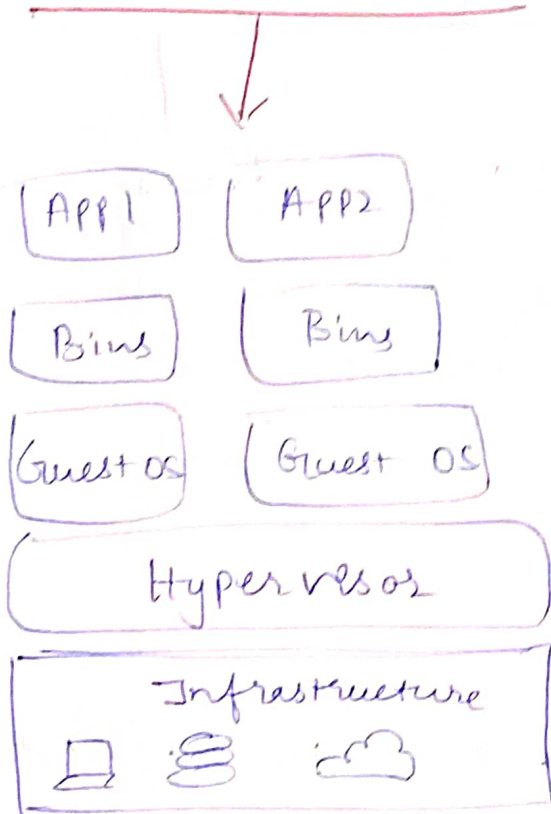 App1 App2
Bins Bins
Guest OS Guest OS
Hypervesor
Infrastructure